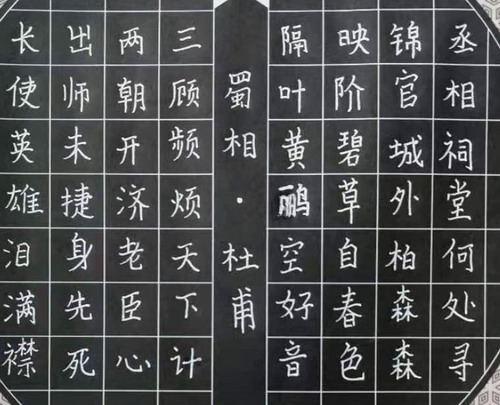 丞相祠堂何处寻
锦官城外柏森森
映阶碧草自春色
隔叶黄鹂空好音
蜀相·杜甫
三顾频烦天下计
两朝开济老臣心
出师未捷身先死
长使英雄泪满襟